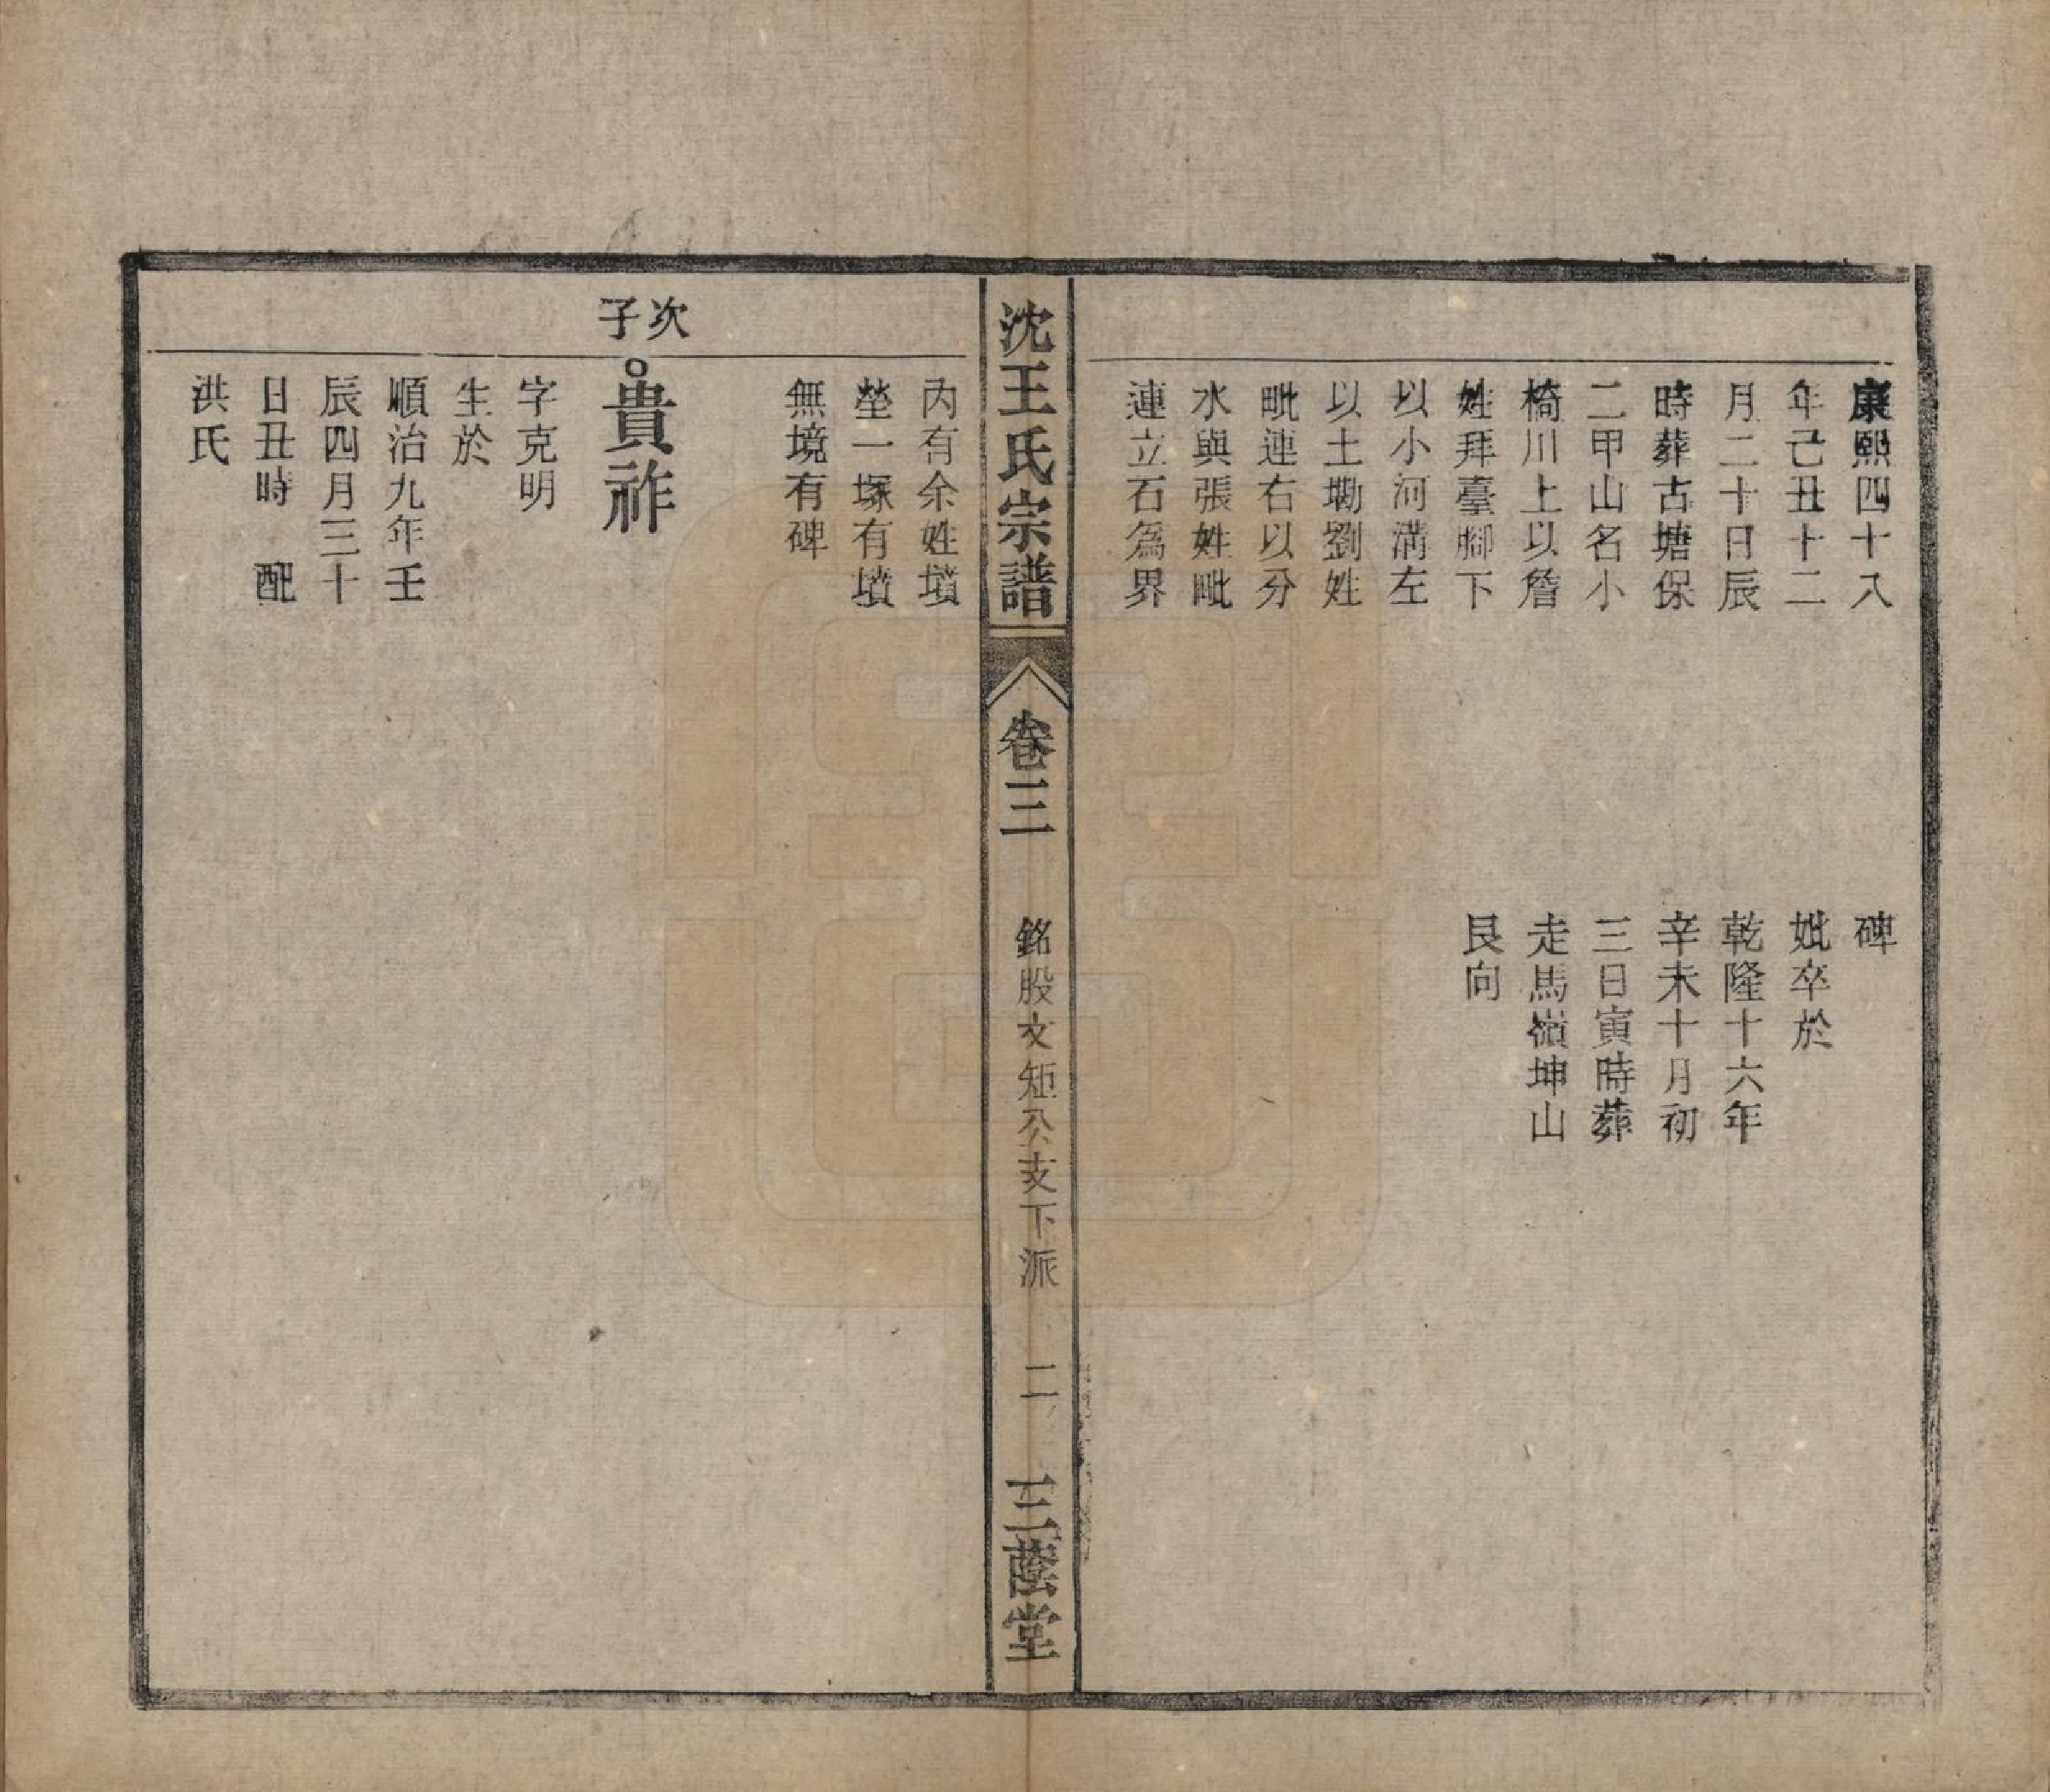 康熙四十八
年己丑十二
月二十日辰
時葬古塘保
二甲山名小
椅川上以詹
姓拜臺腳下
以小河溝左
以土墈劉姓
毗連右以分
水與張姓毗
連立石為界
碑
妣卒於
乾隆十六年
辛未十月初
三日寅時葬
走馬嶺坤山
艮向
沈王氏宗譜
卷三
銘股文矩公支下派
二
三蔭堂
內有余姓墳
塋一塚有墳
無境有碑
次子
貴祚
字克明
生於
順治九年壬
辰四月三十
日丑時 配
洪氏